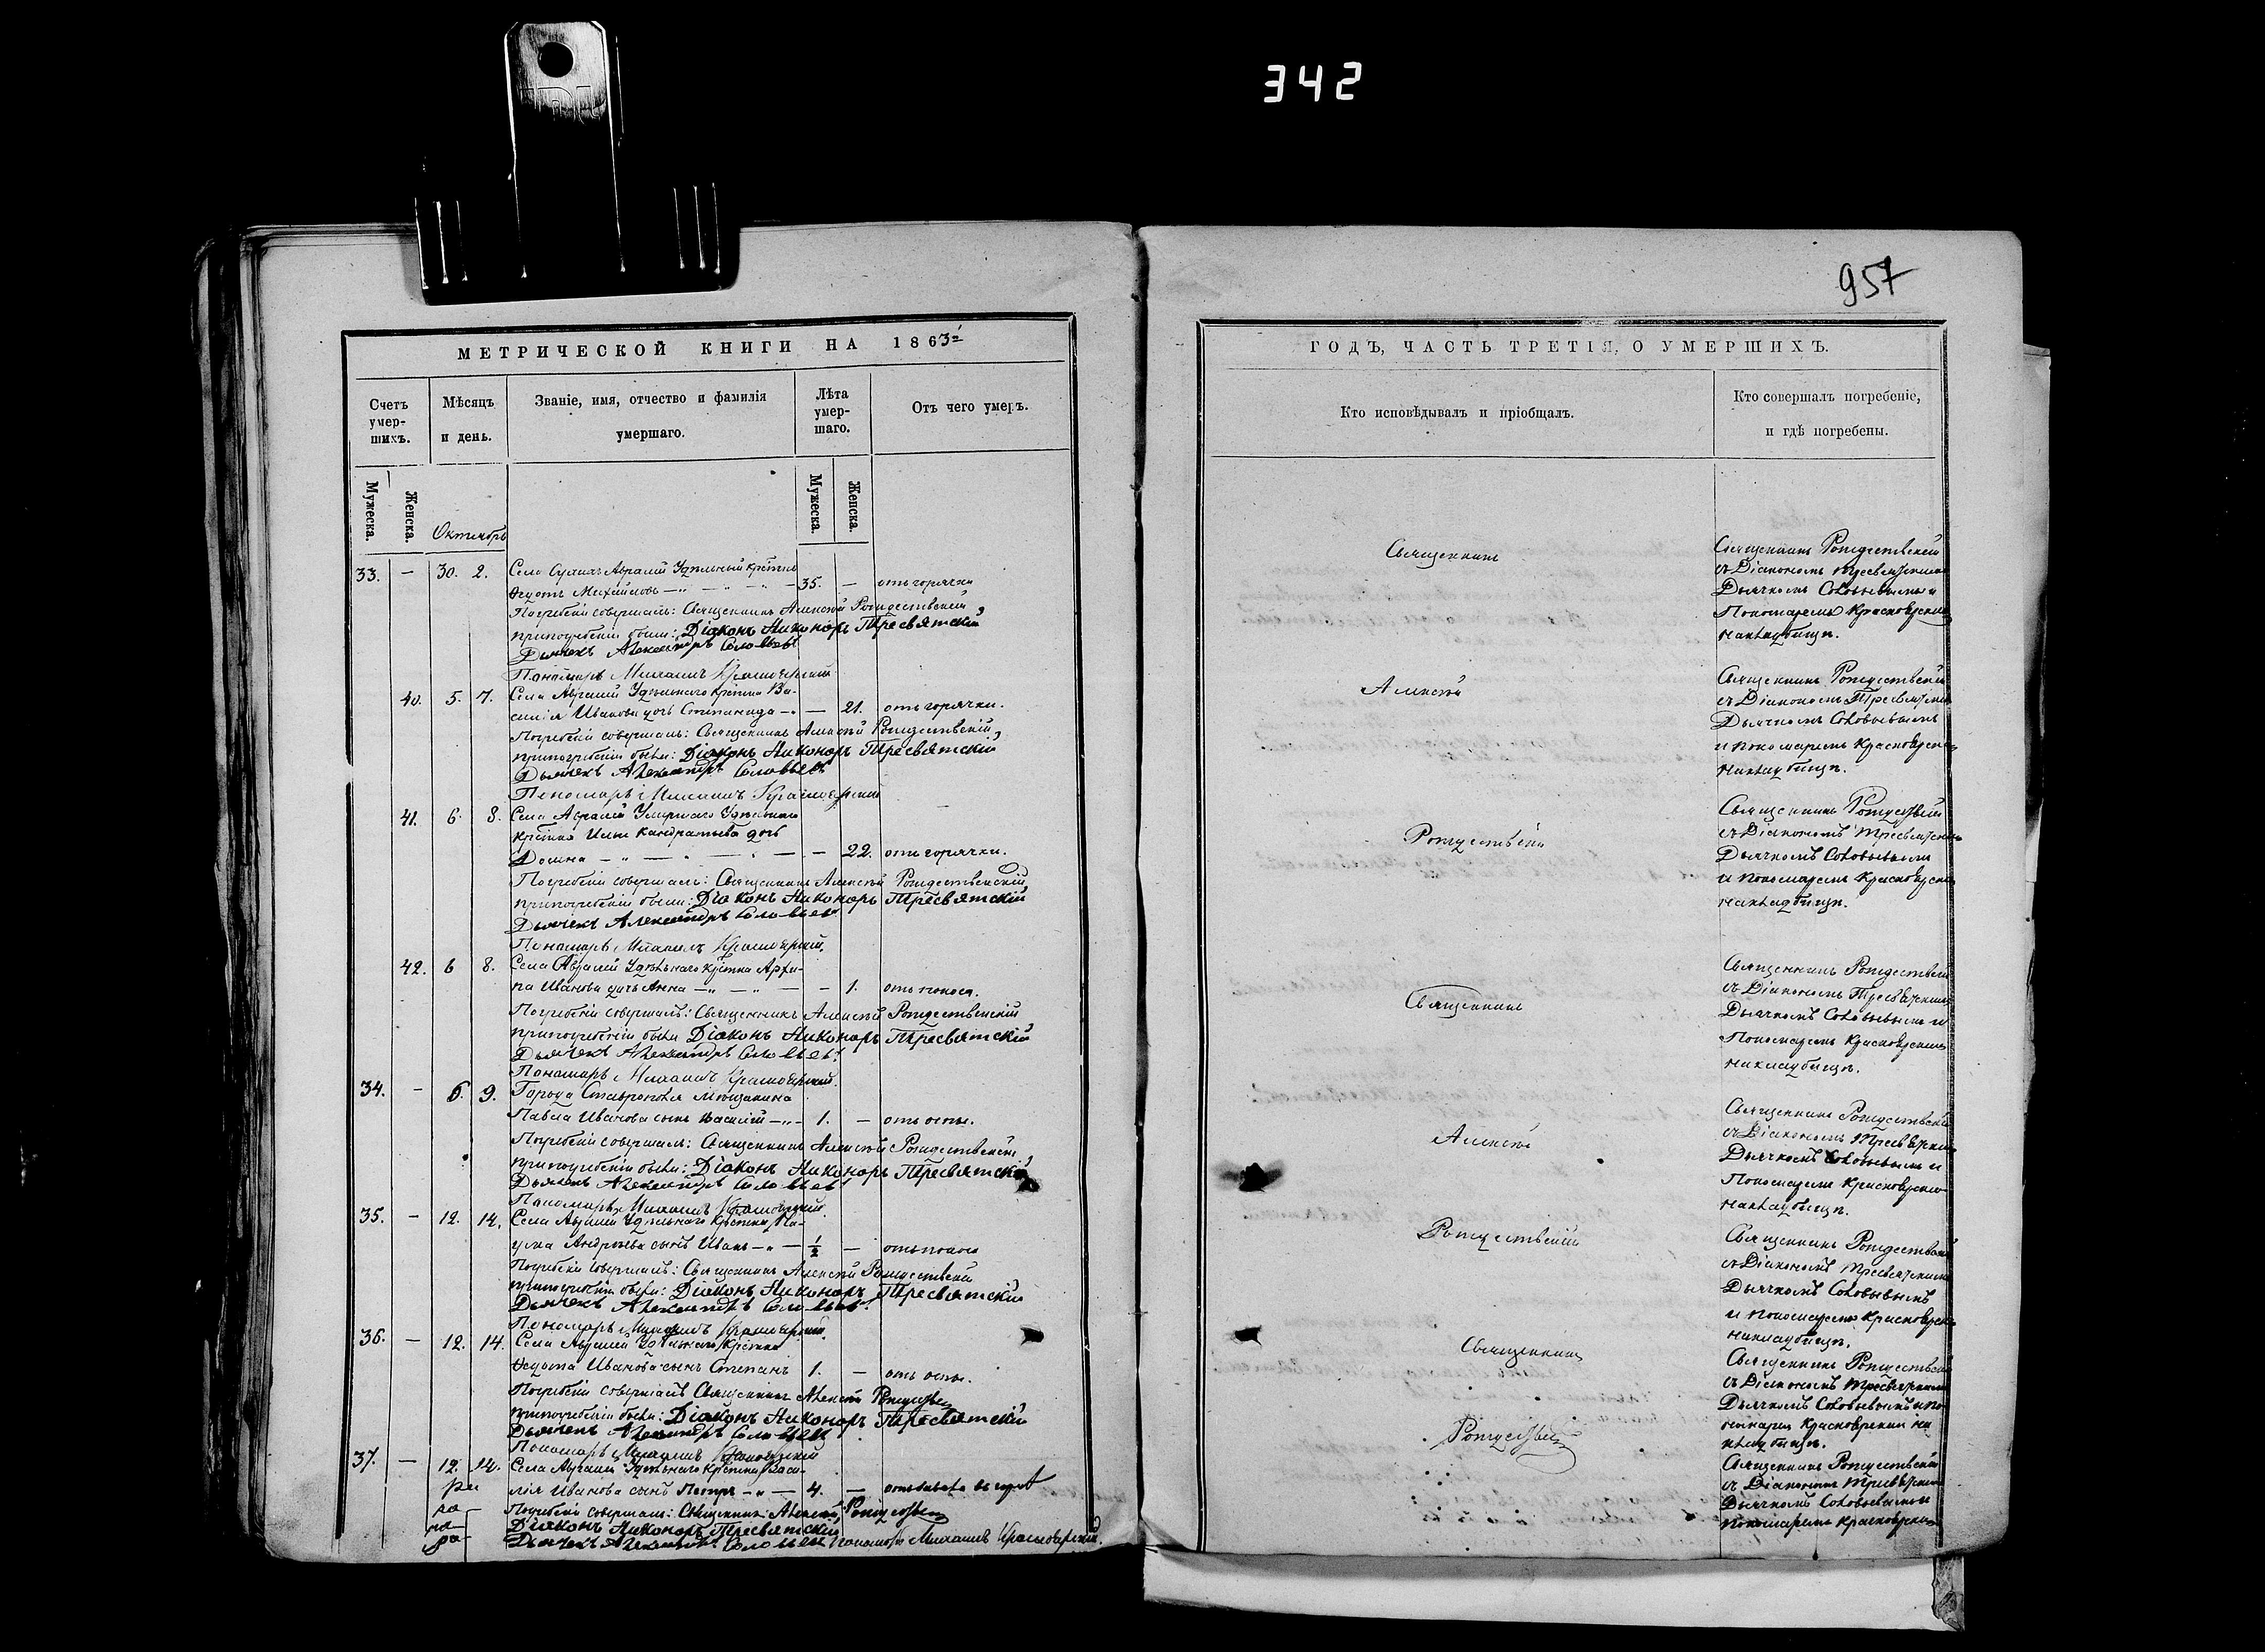 342
957
МЕТРИЧЕСКОЙ КНИГИ НА 1863й
Счетъ умер-шихъ.
Мѣсяцъ и день.
Званіе, имя, отчество и фамилія умершаго.
Лѣта умер-шаго.
Отъ чего умеръ.
Мужеска.
Женска.
Октябрь
Мужеска.
Женска.
33. — 30. 2. Удѣльный
Михайловъ — 35. — отъ горячки
Погребеніе совершалъ: Священникъ Алексѣй Рождественскій
при погребеніи были: Діаконъ Никоноръ Тресвятскій
Дьячекъ Александръ Соловьевъ
Пономарь Михаилъ Красноярскій
40. 5. 7. Села
Иванова дочь Степанида — — 21. отъ горячки.
Погребеніе совершалъ: Священникъ Алексѣй Рождественскій
при погребеніи были: Діаконъ Никоноръ Тресвятскій
Дьячекъ Александръ Соловьевъ
Пономарь Михаилъ Красноярскій
41. 6. 8. Села
дочь
— — — 22. отъ горячки.
Погребеніе совершалъ: Священникъ Алексѣй Рождественскій
при погребеніи были: Діаконъ Никоноръ Тресвятскій
Дьячекъ Александръ Соловьевъ
Пономарь Михаилъ Красноярскій
42. 6 8. Села Удѣльнаго
па Иванова дочь Анна — — 1. отъ поноса.
Погребеніе совершалъ: Священникъ Алексѣй Рождественскій
при погребеніи были Діаконъ Никоноръ Тресвятскій
Дьячекъ Александръ Соловьевъ
Пономарь Михаилъ Красноярскій
34. — 6. 9. Города Ставрополя мѣщанина
Павла Иванова сынъ Василій — 1. — отъ оспы.
Погребеніе совершалъ: Священникъ Алексѣй Рождественскій
при погребеніи были: Діаконъ Никоноръ Тресвятскій
Дьячекъ Александръ Соловьевъ
Пономарь Михаилъ Красноярскій
35. — 12. 14. Села Удѣльнаго На-
ума Андреева сынъ Иванъ — ½ — отъ поноса
Погребеніе совершалъ: Священникъ Алексѣй Рождественскій
при погребеніи были: Діаконъ Никоноръ Тресвятскій
Дьячекъ Александръ Соловьевъ
Пономарь Михаилъ Красноярскій
36. — 12. 14. Села Удѣльнаго
Иванова сынъ Степанъ 1. — отъ оспы.
Погребеніе совершалъ Священникъ Алексѣй Рождественскій
при погребеніи были: Діаконъ Никоноръ Тресвятскій
Дьячекъ Александръ Соловьевъ
Пономарь Михаилъ Красноярскій
37. — 12. 14. Села Удѣльнаго Васи-
лія Иванова сынъ Петръ — 4. —
Погребеніе совершалъ: Священникъ Алексѣй Рождественскій
Діаконъ Никоноръ Тресвятскій
Дьячекъ Александръ Соловьевъ Пономарь Михаилъ Красноярскій.
ГОДЪ, ЧАСТЬ ТРЕТІЯ, О УМЕРШИХЪ.
Кто исповѣдывалъ и пріобщалъ.
Кто совершалъ погребеніе, и гдѣ погребены.
Священникъ
Алексѣй
Рождественскій
Священникъ
Алексѣй
Рождественскій
Священникъ
Рождественскій
Священникъ Рождественскій
съ Діакономъ Тресвятскимъ
Дьячкомъ Соловьевымъ и
Пономаремъ Красноярскимъ
на кладбищѣ.
Священникъ Рождественскій
съ Діакономъ Тресвятскимъ
Дьячкомъ Соловьевымъ
и пономаремъ Красноярскимъ
на кладбищѣ.
Священникъ Рождественскій
съ Діакономъ Тресвятскимъ
Дьячкомъ Соловьевымъ
и пономаремъ Красноярскимъ
на кладбищѣ.
Священникъ Рождественскій
съ Діакономъ Тресвятскимъ
Дьячкомъ Соловьевымъ и
Пономаремъ Красноярскимъ
на кладбищѣ.
Священникъ Рождественскій
съ Діакономъ Тресвятскимъ
Дьячкомъ Соловьевымъ и
Пономаремъ Красноярскимъ
на кладбищѣ.
Священникъ Рождественскій
съ Діакономъ Тресвятскимъ
Дьячкомъ Соловьевымъ
и пономаремъ Красноярскимъ
на кладбищѣ.
Священникъ Рождественскій
съ Діакономъ Тресвятскимъ
Дьячкомъ Соловьевымъ и по-
номаремъ Красноярскимъ на
кладбищѣ.
Священникъ Рождественскій
съ Діакономъ Тресвятскимъ
Дьячкомъ Соловьевымъ и
пономаремъ Красноярскимъ